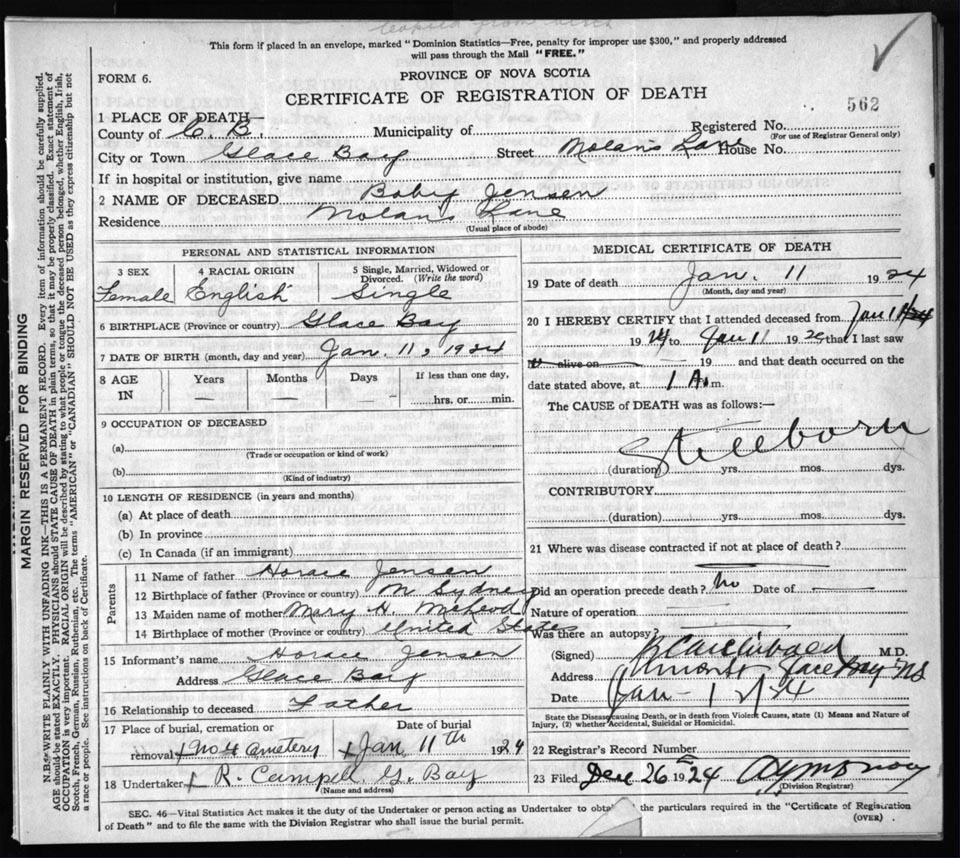 This form if placed in an envelope, marked "Dominion Statistics—Free, penalty for improper use $300," and properly addressed
will pass through the Mail "FREE."
FORM 6.
PROVINCE OF NOVA SCOTIA
CERTIFICATE OF REGISTRATION OF DEATH
562
1 PLACE OF DEATH—
County of C. B. Municipality of Registered No.
(For use of Registrar General only)
City or Town Glace Bay Street Nolan's Lane House No.
If in hospital or institution, give name
2 NAME OF DECEASED Baby Jensen
Residence Nolan's Lane
(Usual place of abode)
PERSONAL AND STATISTICAL INFORMATION
3 SEX 4 RACIAL ORIGIN 5 Single, Married, Widowed or
Divorced. (Write the word)
Female English Single
6 BIRTHPLACE (Province or country) Glace Bay
7 DATE OF BIRTH (month, day and year) Jan. 11, 1924
8 AGE IN Years Months Days If less than one day,
— — — hrs. or min.
9 OCCUPATION OF DECEASED
(a)
(Trade or occupation or kind of work)
(b)
(Kind of industry)
10 LENGTH OF RESIDENCE (in years and months)
(a) At place of death
(b) In province
(c) In Canada (if an immigrant)
Parents
11 Name of father Horace Jensen
12 Birthplace of father (Province or country) N Sydney
13 Maiden name of mother Mary H. McLeod
14 Birthplace of mother (Province or country) United States
15 Informant's name Horace Jensen
Address Glace Bay
16 Relationship to deceased Father
17 Place of burial, cremation or Date of burial
removal No 4 Cemetery Jan 11th 1924
18 Undertaker R. Campell G. Bay
(Name and address)
MEDICAL CERTIFICATE OF DEATH
19 Date of death Jan. 11 1924
(Month, day and year)
20 I HEREBY CERTIFY that I attended deceased from Jan 11
1924 to Jan 11 1924 that I last saw
alive on — 19 and that death occurred on
date stated above, at 1 A. m.
The CAUSE of DEATH was as follows:—
Stillborn
(duration) yrs. mos. dys.
CONTRIBUTORY
(duration) yrs. mos. dys.
21 Where was disease contracted if not at place of death?
Did an operation precede death? No Date of —
Nature of operation
Was there an autopsy?
(Signed) M.D.
Address Glace Bay NS
Date Jan - 12/24
State the Disease causing Death, or in death from Violent Causes, state (1) Means and Nature of
Injury, (2) whether Accidental, Suicidal or Homicidal.
22 Registrar's Record Number
23 Filed Dec 26 1924
(Division Registrar)
SEC. 46—Vital Statistics Act makes it the duty of the Undertaker or person acting as Undertaker to obtain the particulars required in the "Certificate of Registration
of Death" and to file the same with the Division Registrar who shall issue the burial permit.
(OVER)
MARGIN RESERVED FOR BINDING
N.B.—WRITE PLAINLY WITH UNFADING INK—THIS IS A PERMANENT RECORD. Every item of information should be carefully supplied.
AGE should be stated EXACTLY. PHYSICIANS should STATE CAUSE OF DEATH in plain terms, so that it may be properly classified. Exact statement of
OCCUPATION is very important. RACIAL ORIGIN will be described by stating to what people or tongue the deceased person belonged, whether English, Irish,
Scotch, French, German, Russian, Ruthenian, etc. The terms "AMERICAN" or "CANADIAN" SHOULD NOT BE USED as they express citizenship but not
a race or people. See instructions on back of Certificate.